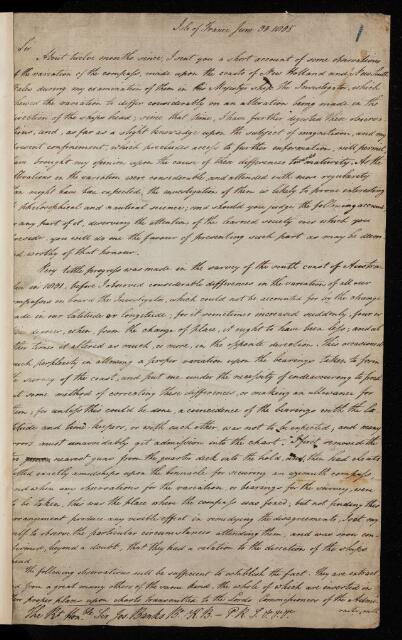 Isle of France June 30 1805
1
Sir
About twelve months since, I sent you a short account of some observations
the variation of the compass, made upon the coasts of New Holland and New South
Wales during my examination of them in His Majestys ship the Investigator, which
shewed the variation to differ considerably on an alteration being made in the
direction of the ships head; since that time, I have further digested these observa-
tions, and, as far as a slight knowledge upon the subject of magnetism, and my
present confinement, which precludes access to further information, will permit,
have brought my opinion upon the cause of these differences to maturity. As the
alterations in the variation were considerable, and attended with more regularity
than might have been expected, the investigation of them is likely to prove interesting
to philosophical and nautical science; and should you judge the following account
or any part of it, deserving the attention of the learned society over which you
preside, you will do me the favour of presenting such part as may be deem-
ed worthy of that honour.
Very little progress was made in the survey of the south coast of Austra-
lia in 1801, before I observed considerable differences in the variation of all our
compasses on board the Investigator, which could not be accounted for by the change
made in our latitude or longitude; for it sometimes increased suddenly four or
five degrees, when, from the change of place, it ought to have been less; and at
other times it altered as much, or more, in the opposite direction. This occasioned
much perplexity in allowing a proper variation upon the bearings taken to form
the survey of the coast, and put me under the necessity of endeavouring to find
out some method of correcting these differences, or making an allowance for
them; for unless this could be done, a coincidence of the bearings with the la-
titude and time keepers, or with each other, was not to be expected, and many
errors must unavoidably get admission into the chart. I first removed the
two nearest guns from the quarter deck into the hold, and then had cleats
nailed exactly amidships upon the binnacle for securing an azimuth compass,
and when any observations for the variation, or bearings for the survey, were
to be taken, this was the place where the compass was fixed; but not finding this
arrangement produce any visible effect in remedying the disagreements, I set my
self to observe the particular circumstances attending them, and was soon con-
vinced, beyond a doubt, that they had a relation to the direction of the ships
head.
The following observations will be sufficient to establish the fact. They are extract-
ed from a great many others of the same kind, the whole of which are inserted in
their proper places upon charts transmitted to the Lords Commissioners of the Admi-
ralty, with
The Rt Honble Sir Jos Banks Bt. K B — P R S &c &c &c